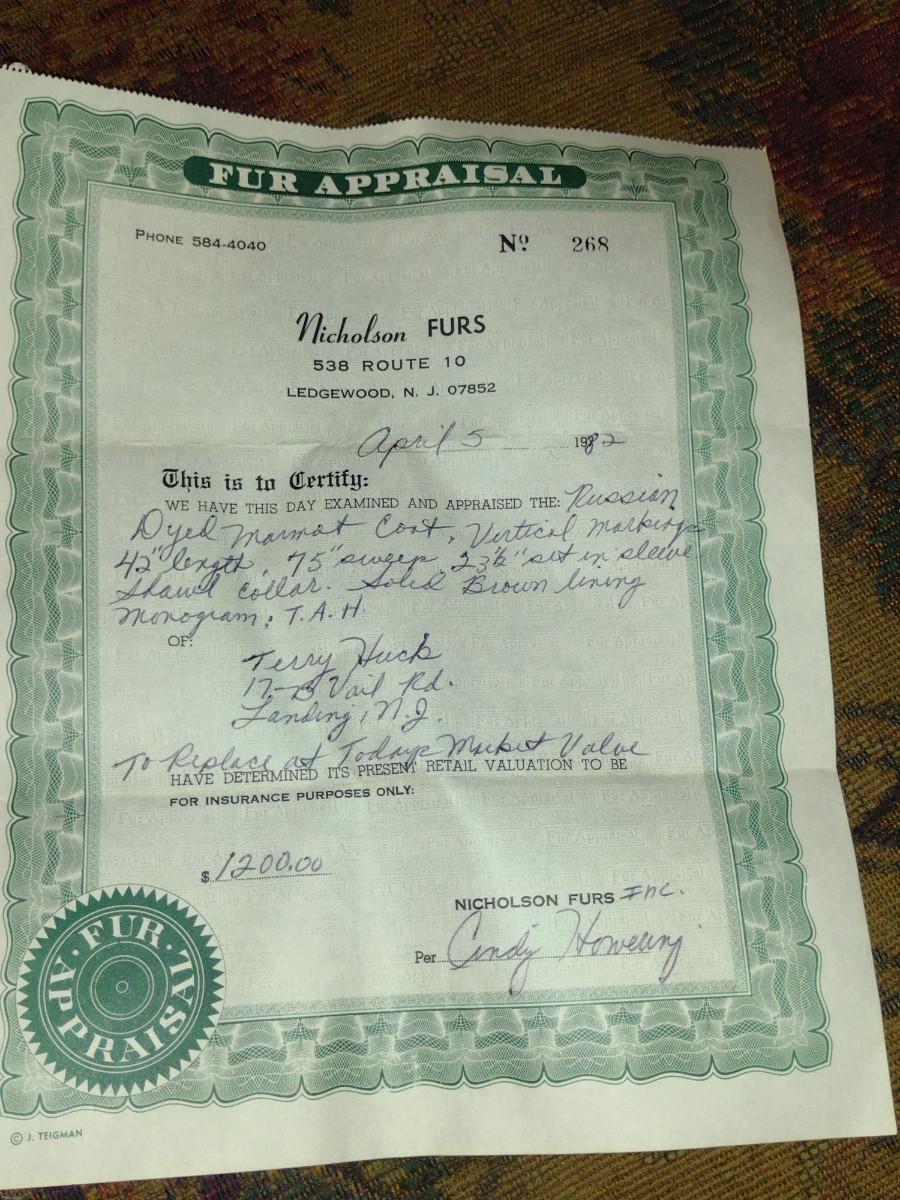 FUR APPRAISAL
PHONE 584-4040
Nº 268
Nicholson FURS
538 ROUTE 10
LEDGEWOOD, N. J. 07852
April 5 1982
This is to Certify:
WE HAVE THIS DAY EXAMINED AND APPRAISED THE: Russian
Dyed Marmot Coat, Vertical Markings
42" length, 75" sweep, 23½" set in sleeve
Shawl collar. Solid Brown lining
Monogram: T.A.H.
OF:
Terry Huck
17-B Vail Rd.
Landing, N.J.
To Replace at Todays Market Value
HAVE DETERMINED ITS PRESENT RETAIL VALUATION TO BE
FOR INSURANCE PURPOSES ONLY:
$ 1200.00
NICHOLSON FURS Inc.
Per Cindy
FUR APPRAISAL
© J. TEIGMAN